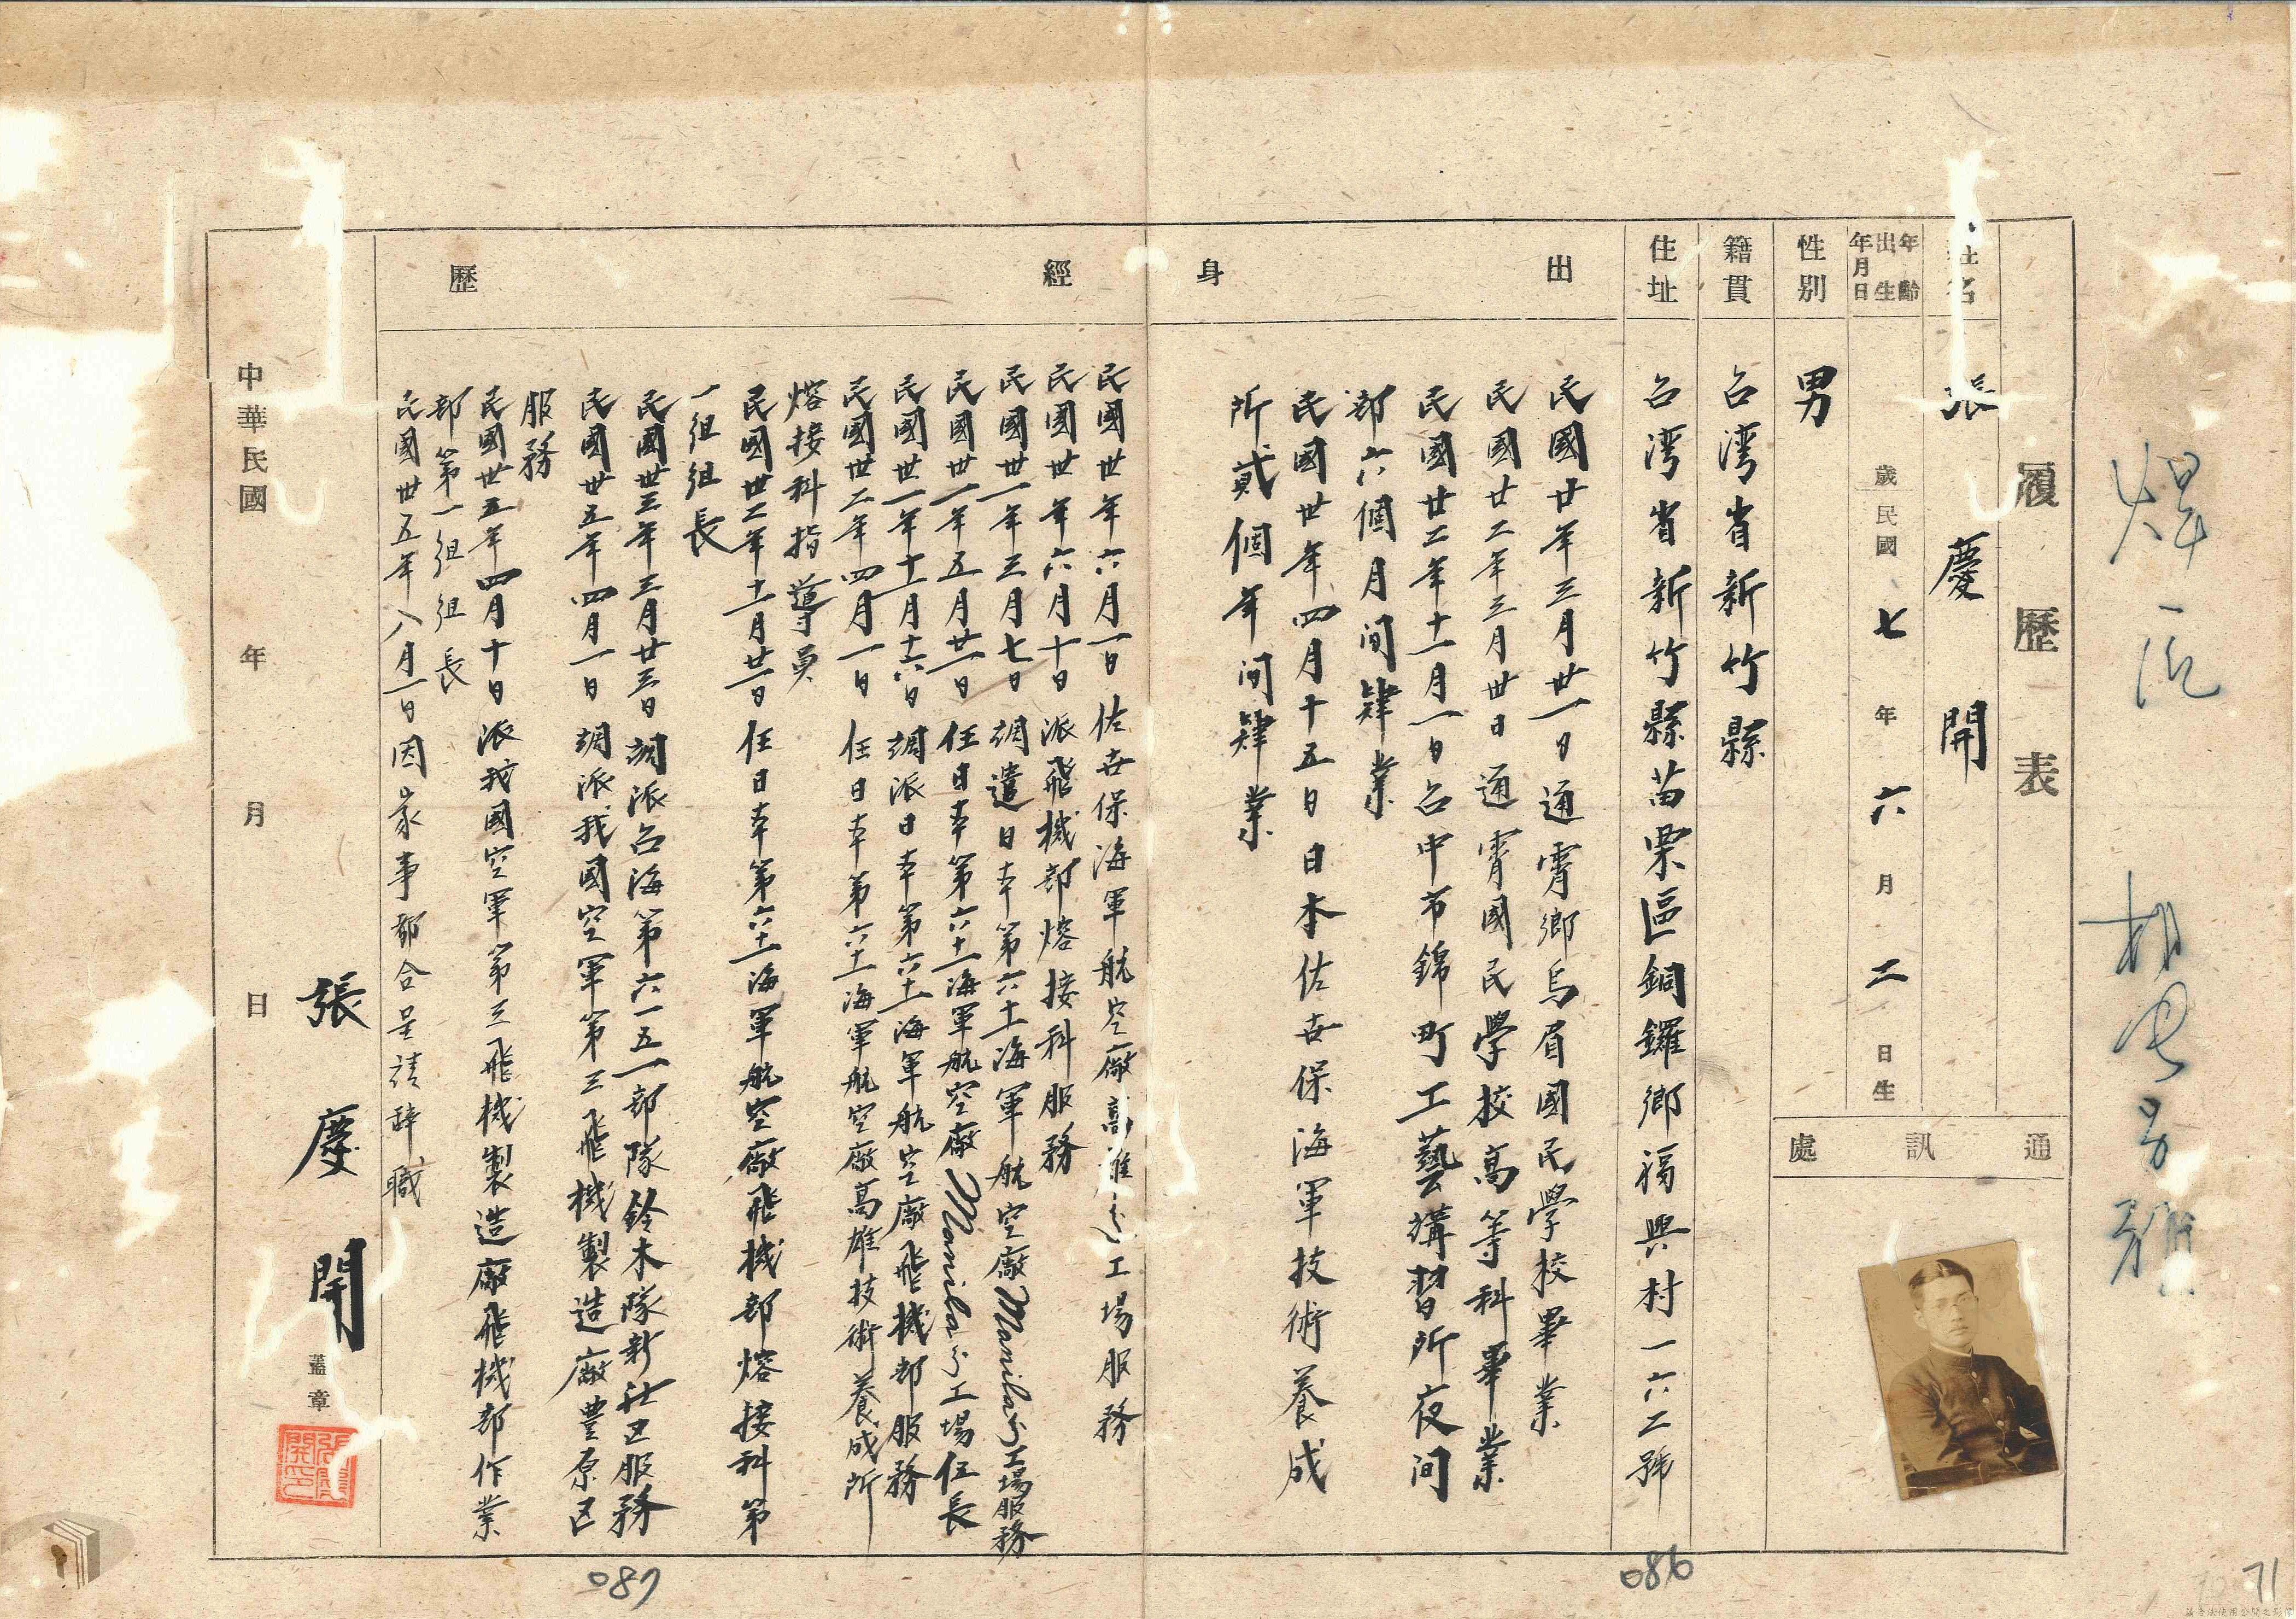 履歷表
姓名 張慶開
年齡 出生年月日 歲 民國七年六月二日生
性別 男
籍貫 台湾省新竹縣
住址 台湾省新竹縣苗栗區銅鑼鄉福興村一六二號
通訊處
出身
民國廿年三月卅一日通霄鄉烏眉國民學校畢業
民國廿二年三月卅日通霄國民學校高等科畢業
民國廿二年十一月一日台中市錦町工藝講習所夜间
部六個月间肄業
民國卅年四月十五日日本佐世保海軍技術養成
所貳個年间肄業
經歷
民國卅年六月一日佐世保海軍航空廠高雄分工場服務
民國卅年六月十日派飛機部熔接科服務
民國卅一年三月七日調遣日本第六十一海軍航空廠Manila分工場服務
民國卅一年五月廿一日任日本第六十一海軍航空廠Manila分工場伍長
民國卅一年十一月十六日調派日本第六十一海軍航空廠飛機部服務
民國卅二年四月一日任日本第六十一海軍航空廠高雄技術養成所
熔接科指導員
民國卅二年十一月廿一日任日本第六十一海軍航空廠飛機部熔接科第
一組組長
民國卅三年三月廿三日調派台海第六一五一部隊鈴木隊新社区服務
民國卅五年四月一日調派我國空軍第三飛機製造廠豊原区
服務
民國卅五年四月十日派我國空軍第三飛機製造廠飛機部作業
部第一組組長
民國卅五年八月一日因家事都合呈請辞職
張慶開 蓋章
中華民國 年 月 日
086
087
71